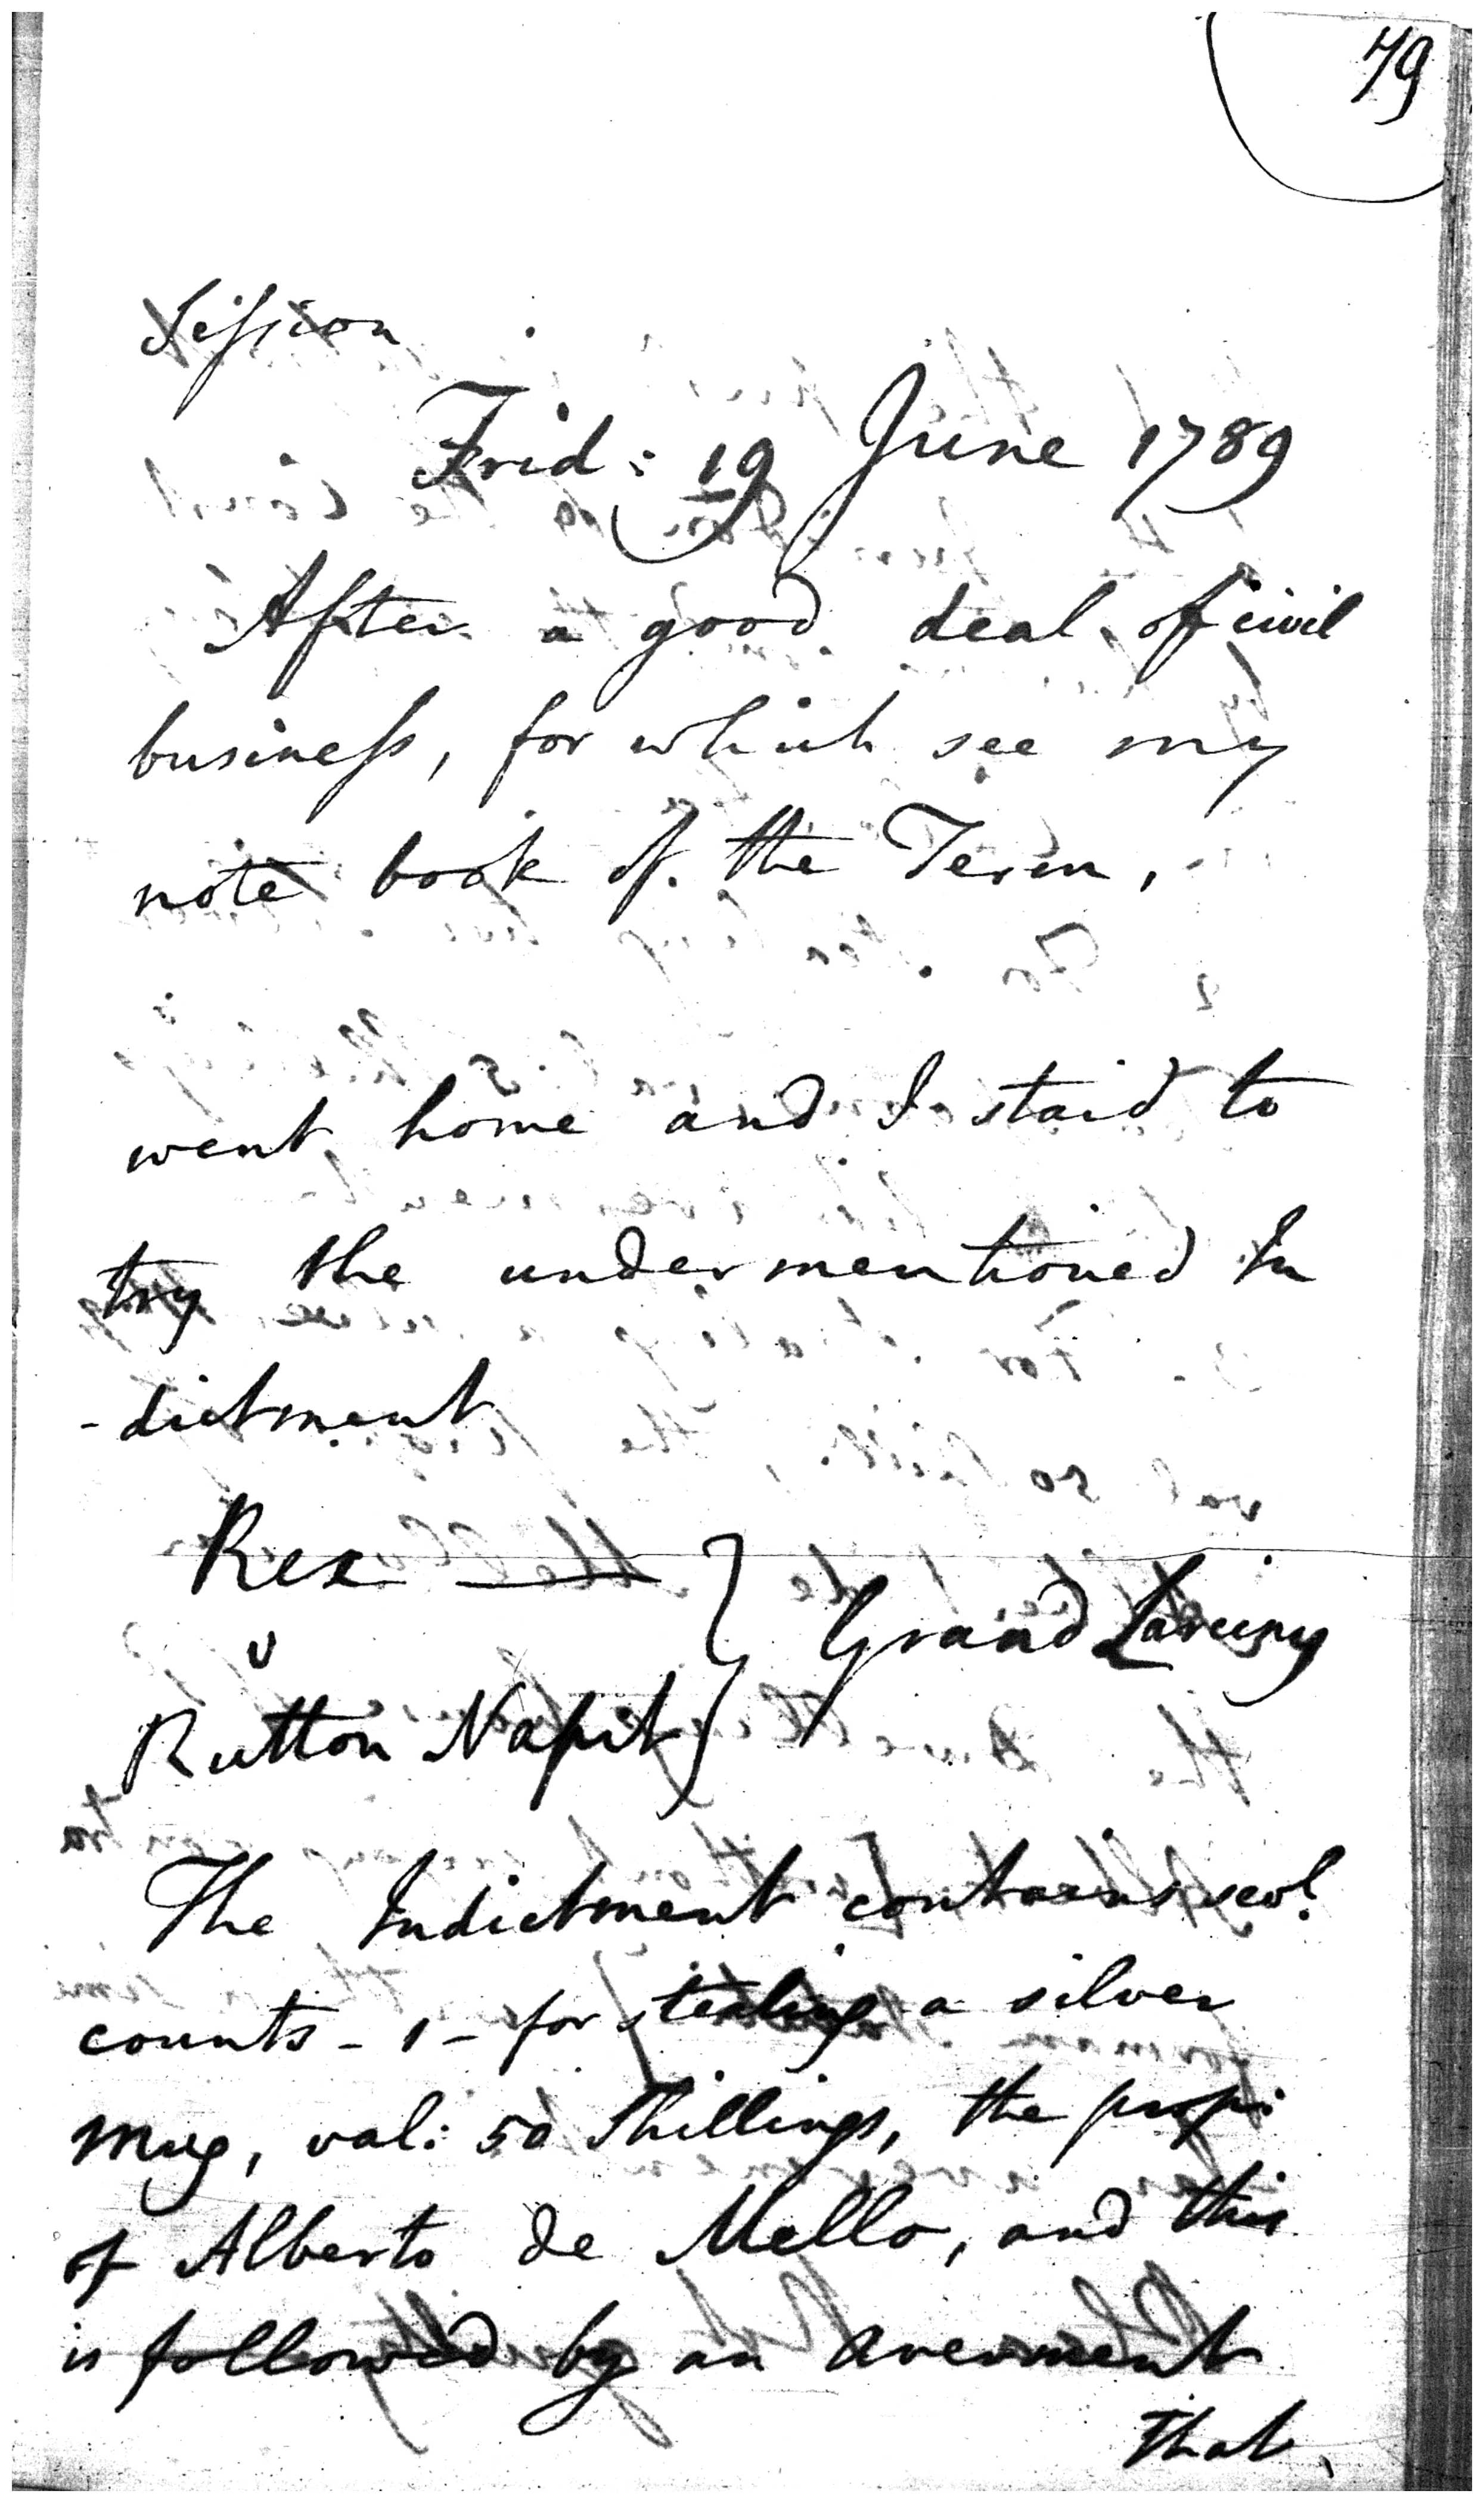 79
Session
Frid: 19 June 1789
After a good deal of civil
business, for which see my
note book of the Term,
went home and I staid to
try the undermentioned In
-dictment
Rex
v
Rutton Napit } Grand Larceny
The Indictment contains sevl.
counts - 1 - for stealing a silver
mug, val: 50 Shillings, the prop:
of Alberto de Mello, and this
is followed by an averment
that,